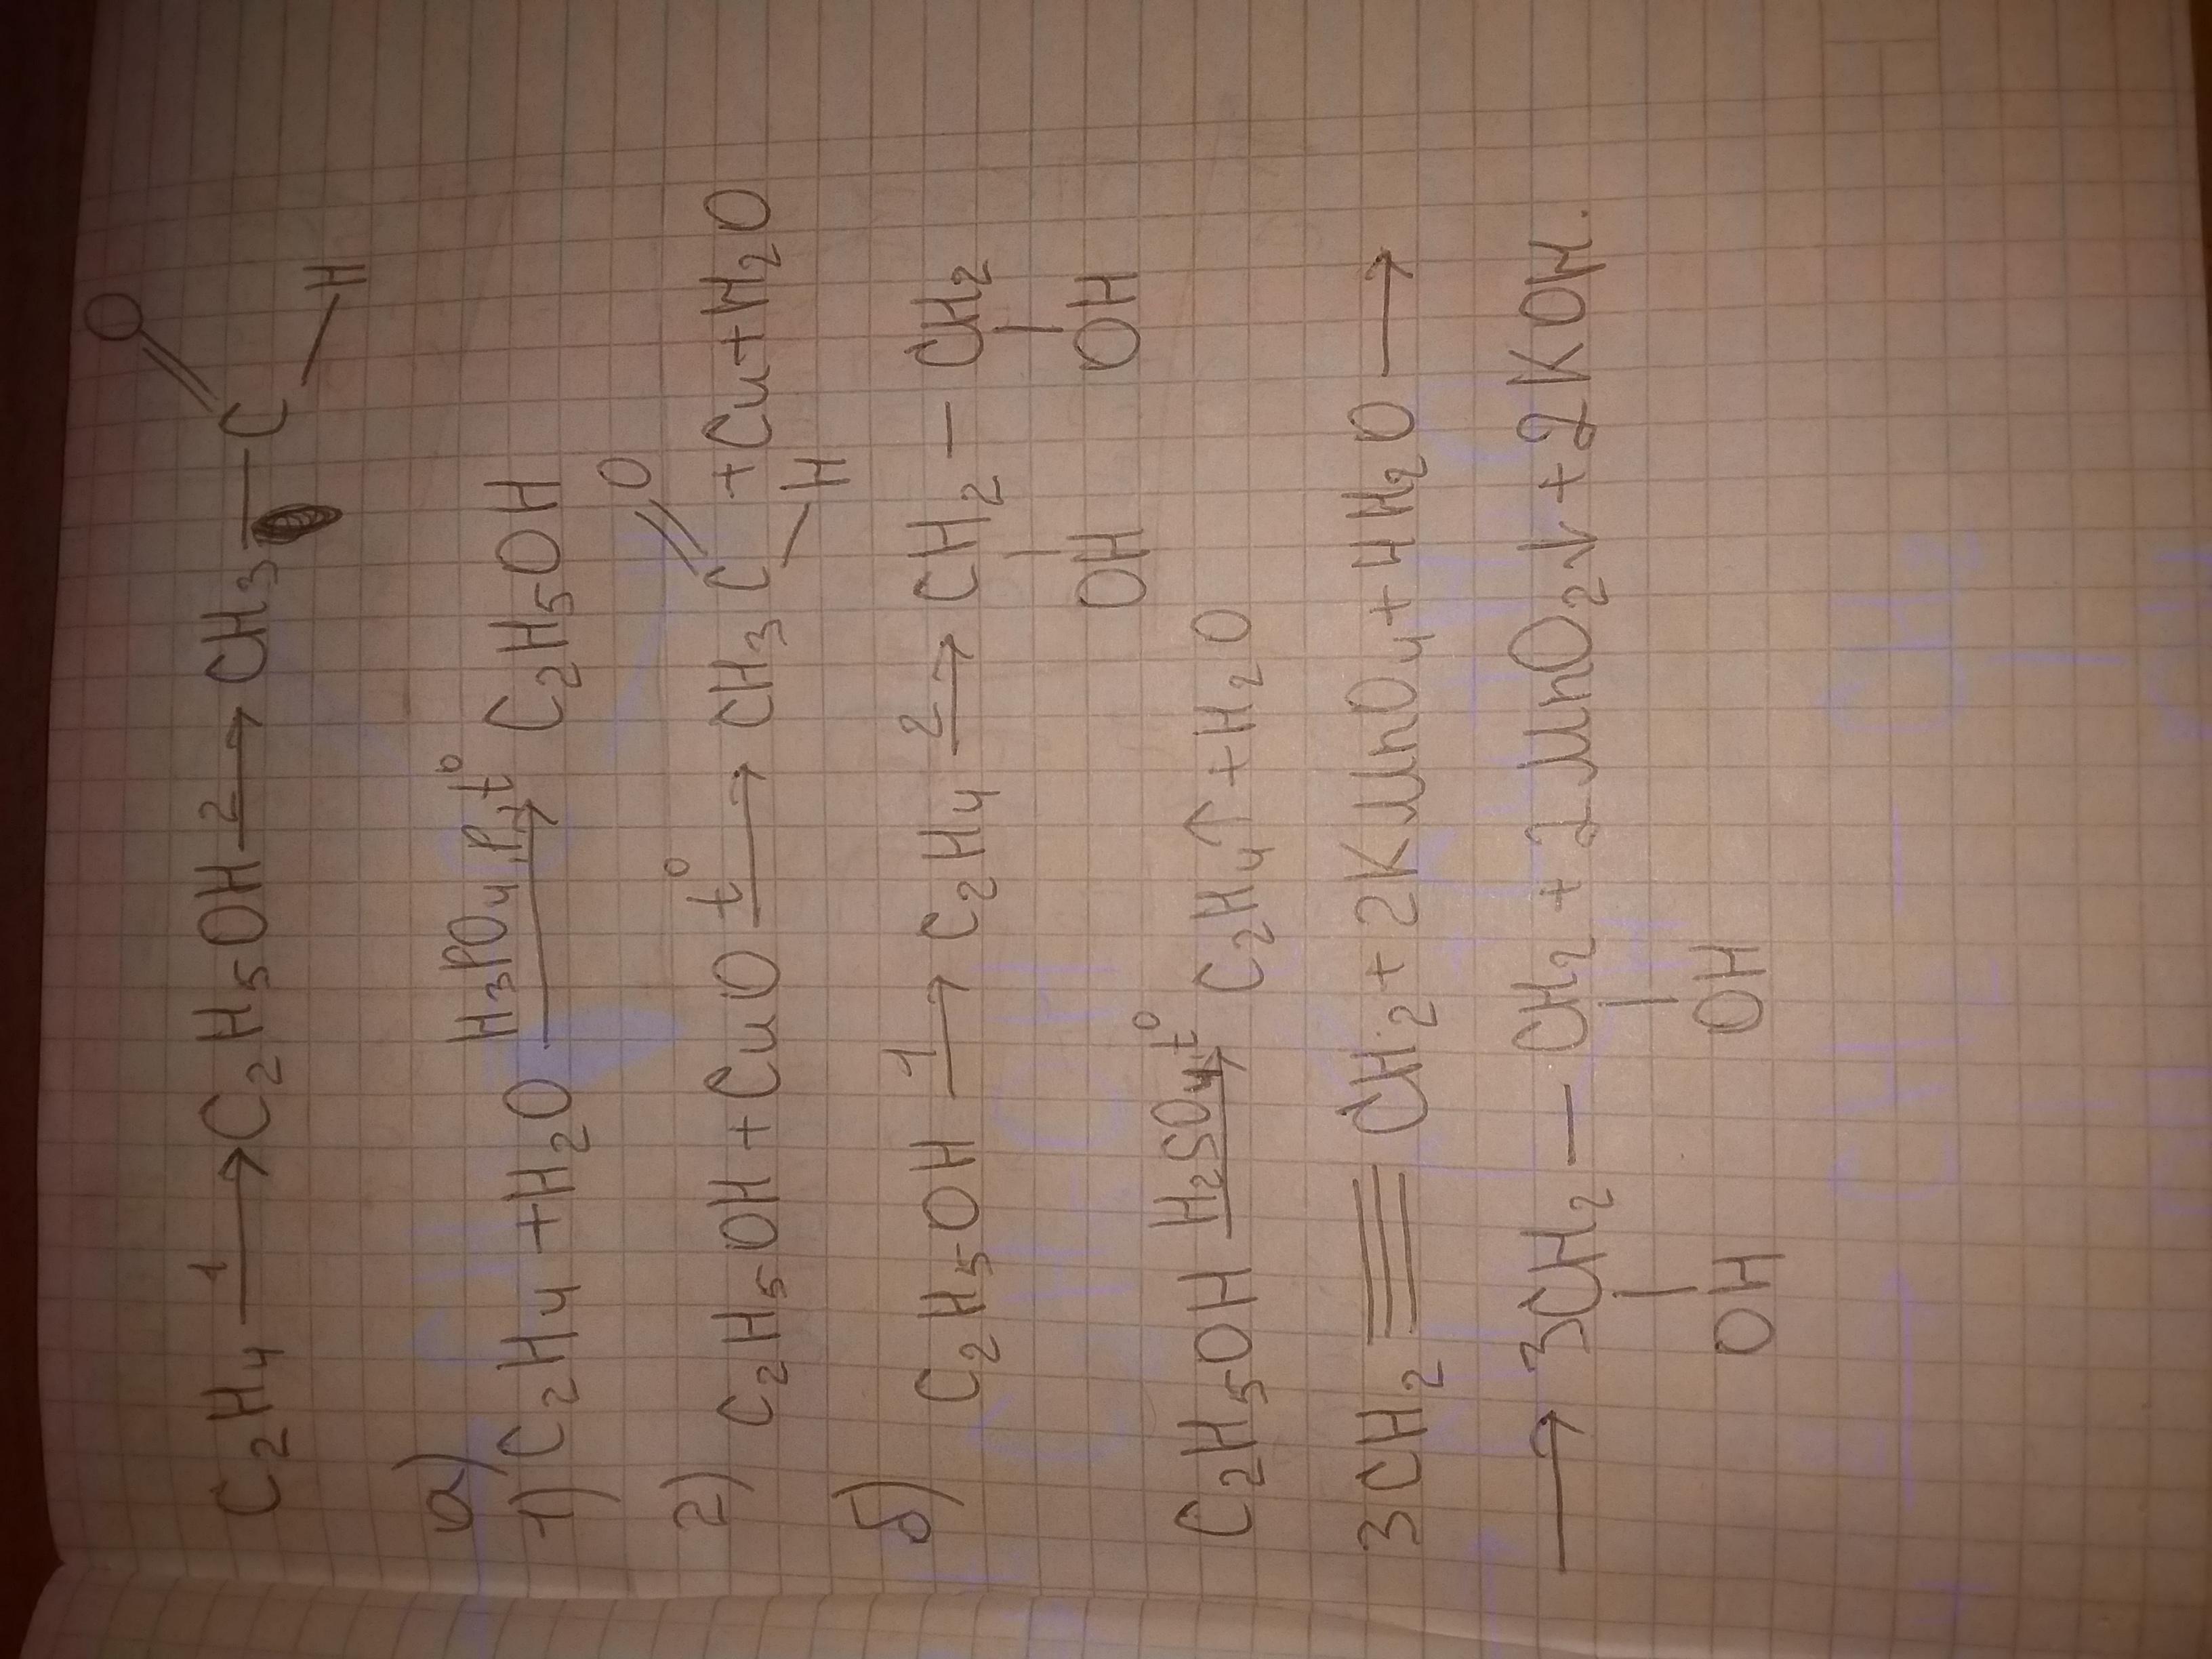 C₂H₄ —1→ C₂H₅OH —2→ CH₃ — C
O
H
а)
1) C₂H₄ + H₂O —H₃PO₄, P, t°→ C₂H₅OH
2) C₂H₅OH + CuO —t°→ CH₃ C + Cu + H₂O
O
H
б)
C₂H₅OH —1→ C₂H₄ —2→ CH₂ — CH₂
OH OH
C₂H₅OH —H₂SO₄, t°→ C₂H₄↑ + H₂O
3CH₂ ≡ CH₂ + 2KMnO₄ + 4H₂O →
→ 3CH₂ — CH₂ + 2MnO₂↓ + 2KOH.
OH OH